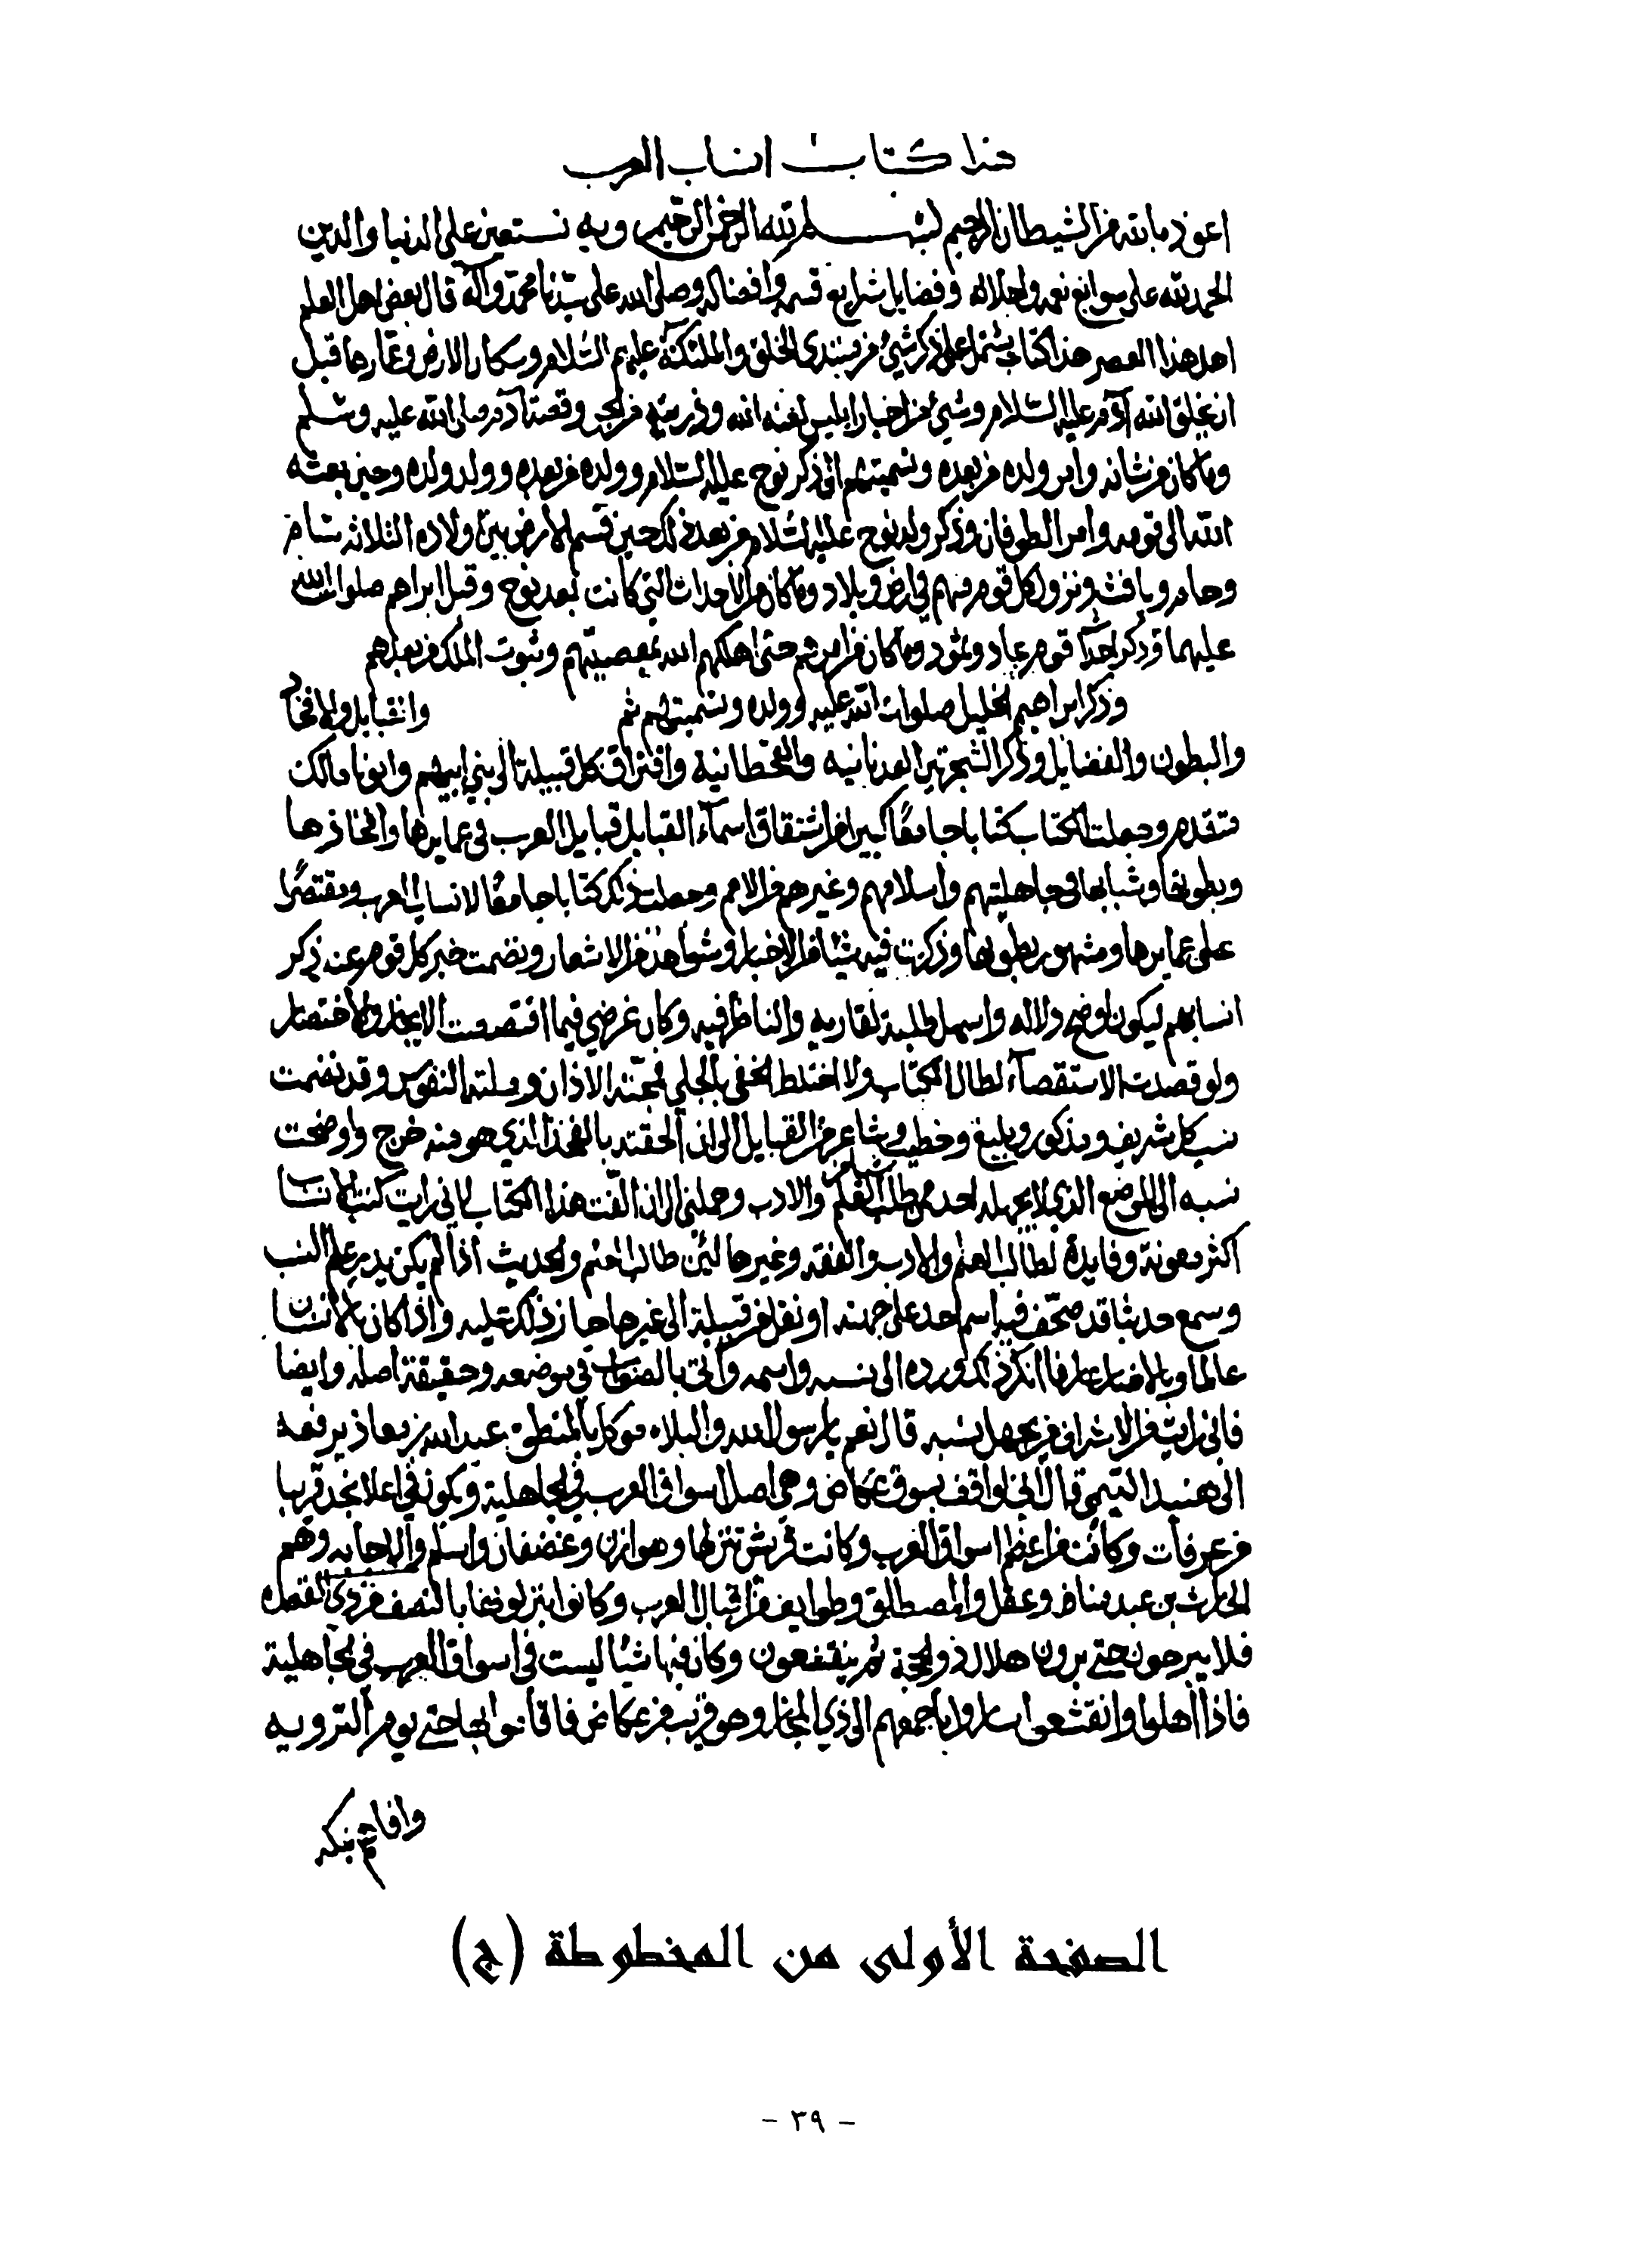 هذا كتاب انساب العرب
اعوذ بالله من الشيطان الرجيم بسم الله الرحمن الرحيم وبه نستعين على الدنيا والدين
الحمد لله على سوابغ نعمه واجلاله وفضايل شرايع قسمه وافضاله وصلى الله على سيدنا محمد وآله قال بعض اهل العلم
اهل هذا العصر هذا كتاب يشتمل على ذكر شيء من مبتدى الخلق والملئكة عليهم السلام وسكان الارض وعمارها قبل
ان يخلق الله آدم عليه السلام وشيء من اخبار ابليس لعنه الله وذريته من الجن وقصة آدم صلى الله عليه وسلم
وما كان من شانه وامر ولده من بعده وتسميتهم الى ذكر نوح عليه السلام وولده من بعده وولد ولده وحين بعثه
الله الى قومه وامر الطوفان وذكر ولد نوح عليه السلام من بعد ذلك حين قسم الارض بين اولاده الثلاثه سام
وحام ويافث ونزول كل قوم منهم في ارض وبلاد وما كان من الاحداث التي كانت بعد نوح وقبل ابراهيم صلوات الله
عليهما وذكر قوم عاد وثمود وما كان من امرهم حتى اهلكهم الله بمعصيتهم وثبوت الملك من بعدهم
وذكر ابراهيم الخليل صلوات الله عليه وولده وتسميتهم ثم والافخاذ
والبطون والفضايل وذكر الشجرتين العدنانيه والقحطانية وافتراق كل قبيلة الى بني ابيهم
متقدم وجعلت الكتاب كتابا جامعا كبيرا من اشتقاق اسمآء القبايل قبايل العرب في عمايرها وافخاذها
وبطونها وشبابها في جاهليتهم واسلامهم وغيرهم من الامم وجعلت ذلك كتابا جامعا لانساب العرب ومقتصرا
على عمايرها ومشهور بطونها وذكرت فيه شيئا من الاخبار وشواهد من الاشعار ونضمت خبر كل قوم عند ذكر
انسابهم ليكون اوضح دلاله واسهل طلبة لقاريه والناظر فيه وكان غرضي فيما اقتصصت الايجاز والاختصار
ولو قصدت الاستقصآء لطال الكتاب ولاختلط الخفي بالجلي فمجته الاذان وملته النفوس وقد نضمت
نسب كل شريف ومذكور وبليغ وخطيب وشاعر من القبايل الى ان الحقته بالفخذ الذي هو منه خرج واوضحت
نسبه الى الموضع الذي لا يجهله احد ممن طلب العلم والادب وحملني الى ان الفت هذا الكتاب لاني رايت كتب الانساب
اكثر معونة وفايدة لطالب العلم والادب والفقه وغيرها لئن طالب العلم والحديث اذا لم يكن يدري علم النسب
وسمع حديثا قد صحف فيه اسم احد على جهته او نقل من قبيلة الى غيرها جاز ذلك عليه واذا كان بالانساب
عالما وبالاخبار عارفا انكر ذلك ورده الى نسبه واسمه وأتى بالصواب في موضعه وحقيقة اصله وايضا
فاني رايت من الاشراف من يجهل نسبه قال نعم يا رسول الله والبلاء موكل بالمنطق عبد الله بن معاذ يرفعه
الى هنيد التيمي قال اني لواقف بسوق عكاض وهي اصل اسواق العرب في الجاهلية ويكون في اعلا نجد قريبا
من عرفات وكانت من اعظم اسواق العرب وكانت قريش تنزلها وهوازن وغضفان واسلم والاحابه وهم
الحارث بن عبد مناض وعضل والمصطلق وطوايف من اقبال العرب وكانوا ينزلونها بالنصف من ذي القعده
فلا يبرحون حتى يرون هلال ذو الحجة ثم ينقشعون وكان فيها شيئا ليست في اسواق العرب في الجاهلية
فاذا اهلوا وانقشعوا ساروا باجمعهم الى ذي المجاز وهو قريب من عكاض فاقاموا بها حتى يوم التروييه
وافاهم بمكه
الصفحة الأولى من المخطوطة (ج)
- ٣٩ -